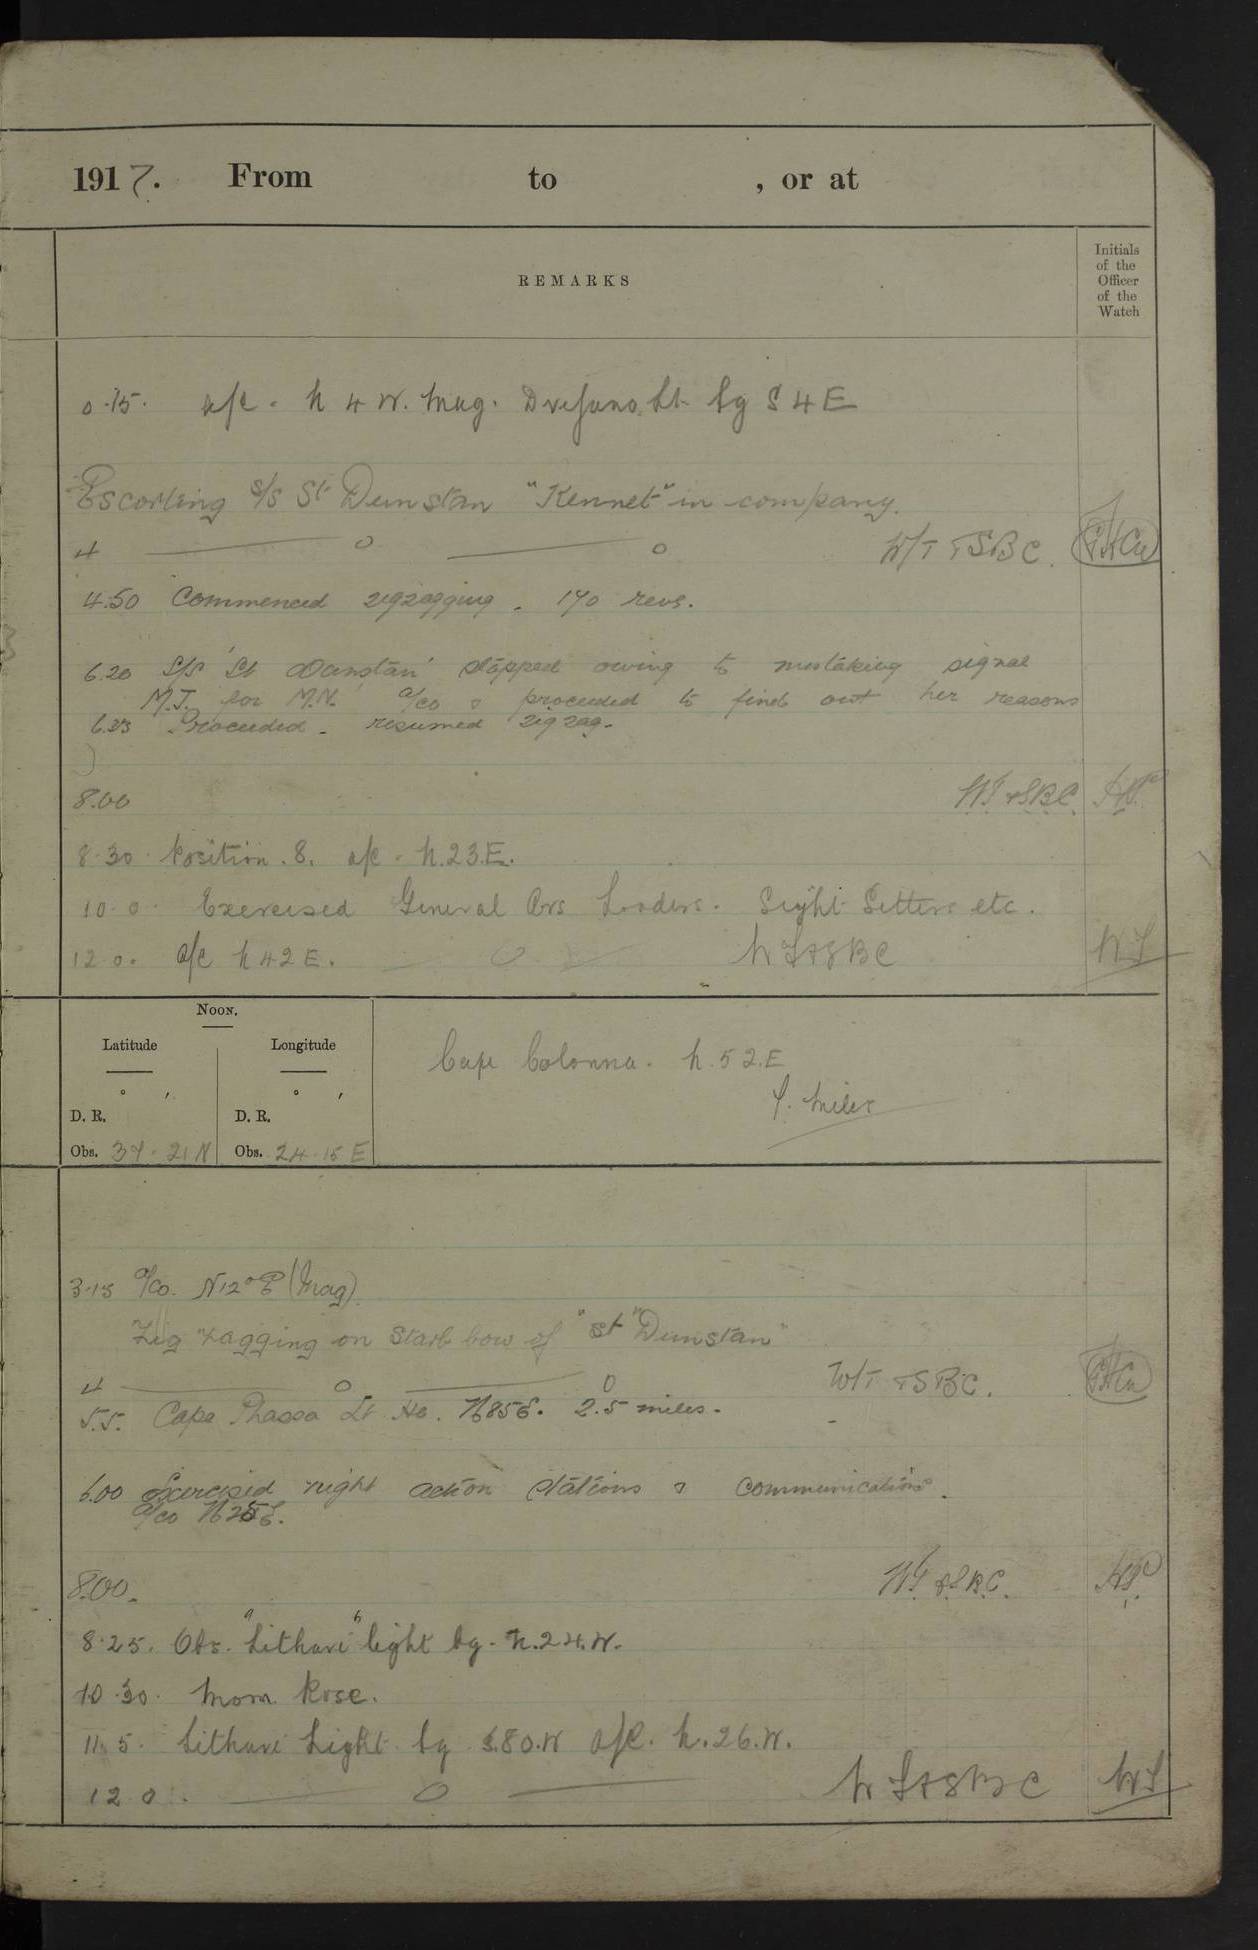 1917. From to , or at
REMARKS
Initials of the Officer of the Watch
0.15. a/c. N 4 W. Mag. Drepano Lt. bg S 4 E
Escorting s/s St Dunstan "Kennet" in company.
4 0 0 W/T & SBC.
4.50 Commenced zigzagging. 170 revs.
6.20 S/S 'St Dunstan' stopped owing to mistaking signal
M.J. for M.N. a/co & proceeded to find out her reasons
6.23 Proceeded. resumed zigzag.
8.00 WT & SBC.
8.30. Position. 8. a/c. N.23.E.
10.0. Exercised General Qrs Loaders. Sight Setters etc.
12 0. a/c N 42 E. 0 W T & S B C
NOON.
Latitude Longitude
° ′ ° ′
D. R. D. R.
Obs. 37. 21 N Obs. 24. 15 E
Cape Colonna. N. 52. E
9. miles
3.15 a/co. N12°E (Mag)
Zig zagging on Starb bow of "St Dunstan"
4 0 0 W/T & SBC.
5.5. Cape Phassa Lt Ho. N85E. 2.5 miles.
6.00 Exercised night action stations & communications.
a/co N25E.
8.00. WT & S.B.C.
8.25. Obs. "Lithari" light bg. N.24.W.
10.30. Moon Rose.
11.5. Lithari Light bg S.80.W a/c. N.26.W.
12 0. 0 W T & S B C